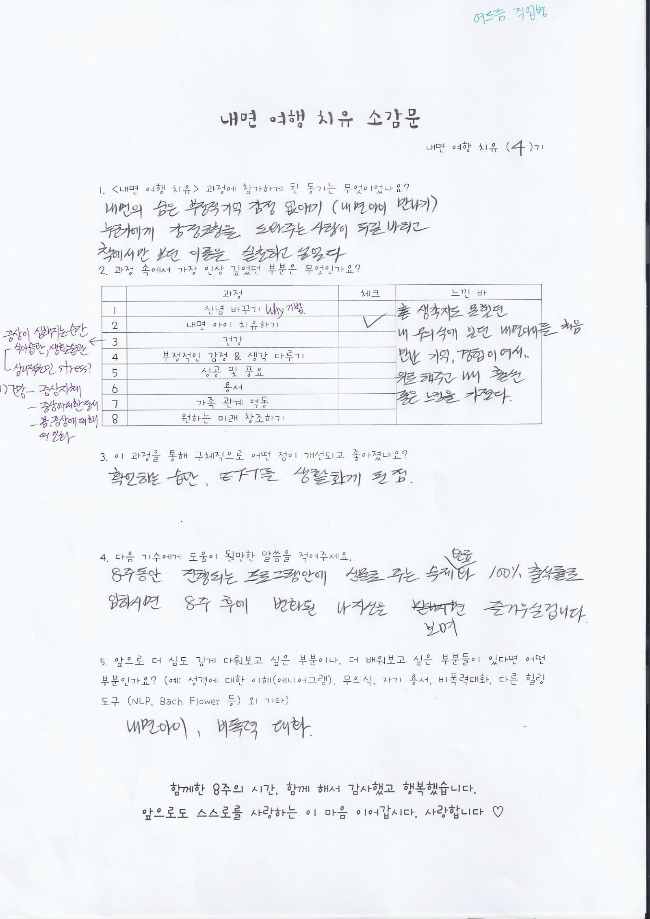 내면 여행 치유 소감문
내면 여행 치유 (4)기
1. <내면 여행 치유> 과정에 참가하게 된 동기는 무엇이었나요?
내면의 숨은 부정적 기억 감정 없애기 (내면아이 만나기)
누군가에게 감정코칭을 도와주는 사람이 되길 바라고
책에서만 보던 이론을 실천하고 싶었다
2. 과정 속에서 가장 인상 깊었던 부분은 무엇인가요?
과정 체크 느낀 바
1 신념 바꾸기 Why 기법
2 내면 아이 치유하기
3 건강
4 부정적인 감정 & 생각 다루기
5 성공 및 풍요
6 용서
7 가족 관계 역동
8 원하는 미래 창조하기
생각지도 못했던
내 무의식에 있던 내면아이를 처음
만난 기억, 경험이어서..
위로해주고 나니
느낌을 가졌다.
증상이 심해지는 순간
식사습관, 생활습관
stress?
건강 - 증상자체
- 증상에 대한 정서
3. 이 과정을 통해 구체적으로 어떤 점이 개선되고 좋아졌나요?
확언하는 습관, EFT를 생활화하게 된 점.
4. 다음 기수에게 도움이 될만한 말씀을 적어주세요.
8주동안 진행되는 프로그램안에 선물로 주는 숙제 완료 100% 출석률로
임하시면 8주 후에 변화된 나 자신을 보며 즐거우실겁니다.
5. 앞으로 더 심도 깊게 다뤄보고 싶은 부분이나, 더 배워보고 싶은 부분들이 있다면 어떤
부분인가요? (예: 성격에 대한 이해(에니어그램), 무의식, 자기 용서, 비폭력대화, 다른 힐링
도구 (NLP, Bach Flower 등) 외 기타)
내면아이, 비폭력 대화.
함께한 8주의 시간, 함께 해서 감사했고 행복했습니다.
앞으로도 스스로를 사랑하는 이 마음 이어갑시다. 사랑합니다 ♡